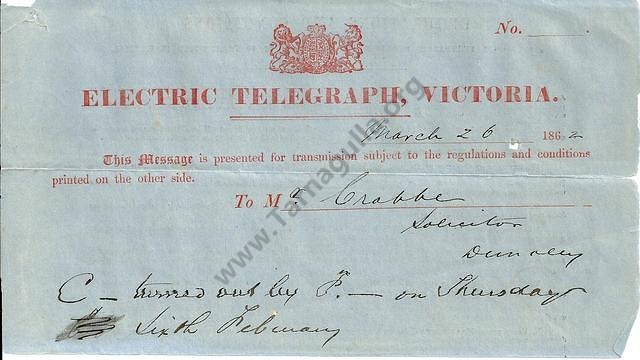 No.
ELECTRIC TELEGRAPH, VICTORIA.
March 26 1862
This Message is presented for transmission subject to the regulations and conditions
printed on the other side.
To Mr. Crabbe
Solicitor
Dunolly
C – turned out by F. – on Thursday
Sixth February
www.Tarnagulla.org